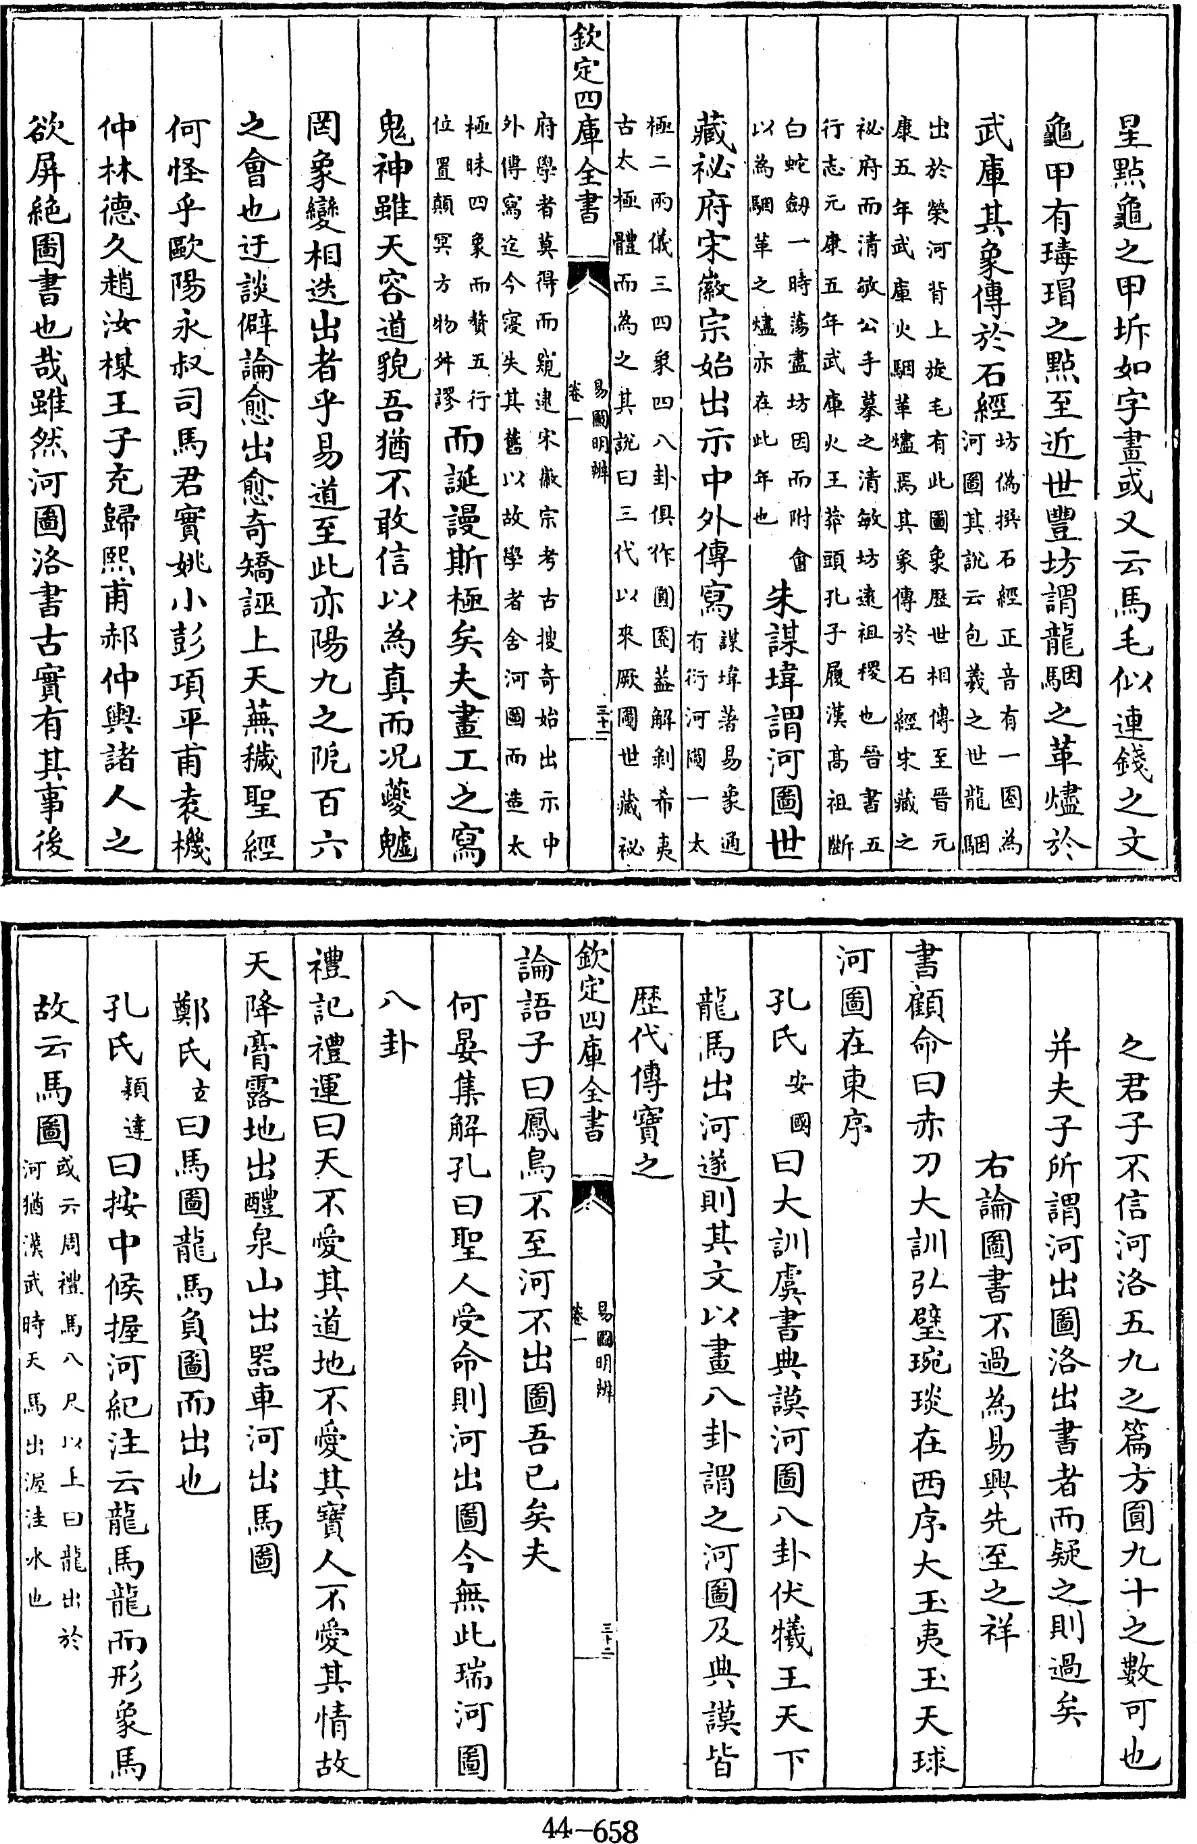 星㸃龜之甲坼如字畫或又云馬毛似連錢之文
龜甲有瑇瑁之㸃至近世豐坊謂龍駰之革燼於
武庫其象傳於石經坊偽撰石經正音有一圖為河圖其説云包羲之世龍駰
出於榮河背上旋毛有此圖象歴世相傳至晉元康五年武庫火駰革燼焉其象傳於石經宋藏之
祕府而清敏公手摹之清敏坊逺祖稷也晉書五行志元康五年武庫火王莽頭孔子履漢髙祖斷
白蛇劒一時蕩盡坊因而附會以為駰革之燼亦在此年也朱謀㙔謂河圖世
藏祕府宋徽宗始出示中外傳寫謀㙔著易象通有衍河圖一太
極二兩儀三四象四八卦俱作圓圏葢解剥希夷古太極體而為之其説曰三代以來厥圖世藏祕
欽定四庫全書
易圖明辨
卷一
三十一
府學者莫得而窺逮宋徽宗考古搜奇始出示中外傳寫迄今寖失其舊以故學者舍河圖而造太
極昧四象而贅五行位置顛冥方物舛謬而誕謾斯極矣夫畫工之寫
鬼神雖天容道貌吾猶不敢信以為真而况夔魖
罔象變相迭出者乎易道至此亦陽九之阨百六
之會也迂談僻論愈出愈奇矯誣上天蕪穢聖經
何怪乎歐陽永叔司馬君實姚小彭項平甫袁機
仲林德久趙汝楳王子充歸熙甫郝仲輿諸人之
欲屏絶圖書也哉雖然河圖洛書古實有其事後
之君子不信河洛五九之篇方圓九十之數可也
并夫子所謂河出圖洛出書者而疑之則過矣
右論圖書不過為易興先至之祥
書顧命曰赤刀大訓弘璧琬琰在西序大玉夷玉天球
河圖在東序
孔氏安國曰大訓虞書典謨河圖八卦伏犧王天下
龍馬出河遂則其文以畫八卦謂之河圖及典謨皆
歴代傳寶之
欽定四庫全書
易圖明辨
卷一
三十二
論語子曰鳳鳥不至河不出圖吾已矣夫
何晏集解孔曰聖人受命則河出圖今無此瑞河圖
八卦
禮記禮運曰天不愛其道地不愛其寶人不愛其情故
天降膏露地出醴泉山出器車河出馬圖
鄭氏玄曰馬圖龍馬負圖而出也
孔氏穎達曰按中候握河紀注云龍馬龍而形象馬
故云馬圖或云周禮馬八尺以上曰龍出於河猶漢武時天馬出渥洼水也
44-658